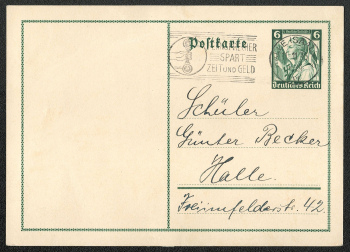 Postkarte
SPART
ZEIT UND GELD
6 6
Deutsches Reich
Schüler
Günther Becker
Halle.
Freiimfelderstr. 42